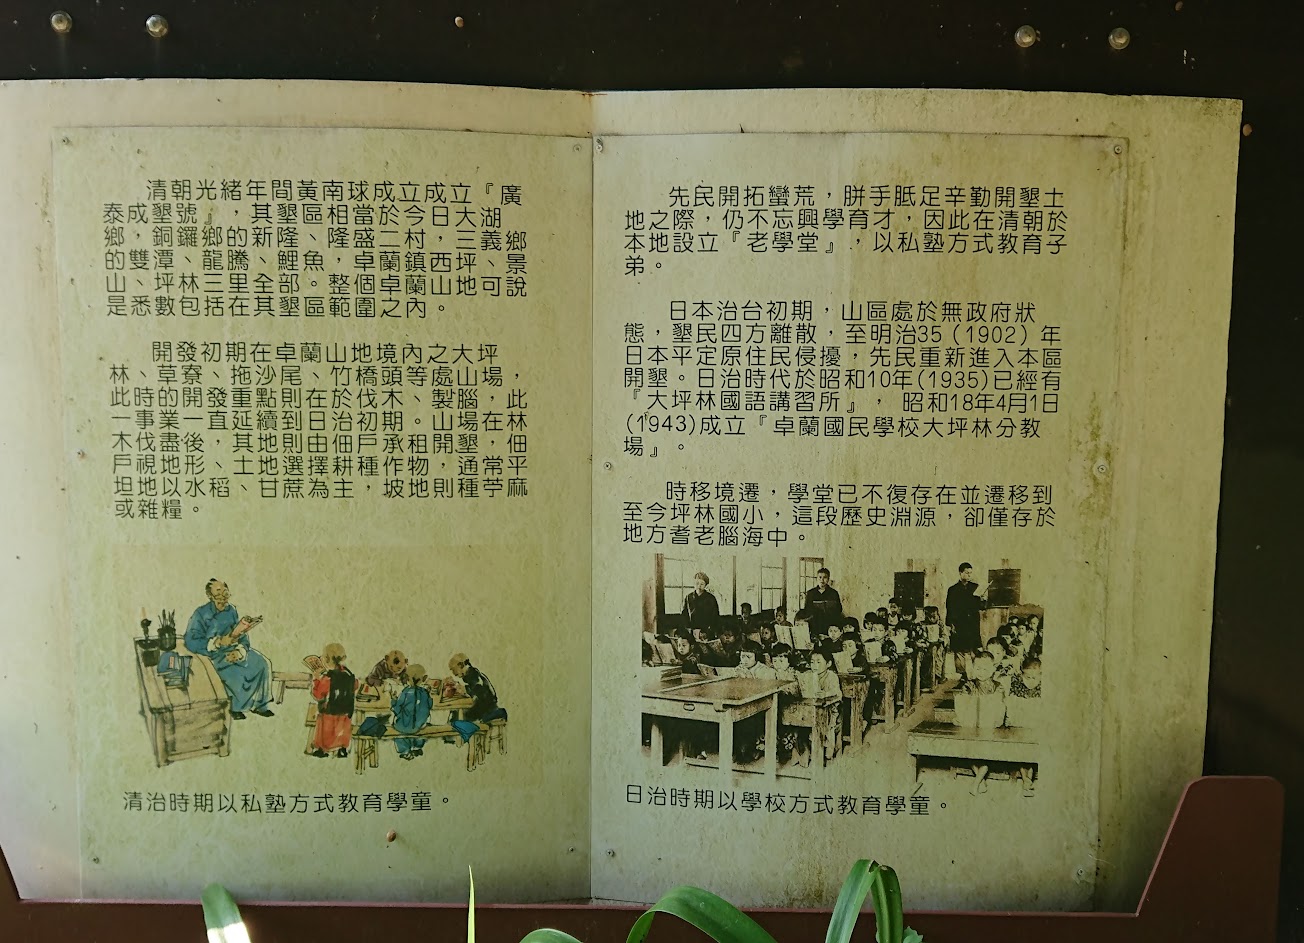 清朝光緒年間黃南球成立成立『廣
泰成墾號』，其墾區相當於今日大湖
鄉，銅鑼鄉的新隆、隆盛二村，三義鄉
的雙潭、龍騰、鯉魚，卓蘭鎮西坪、景
山、坪林三里全部。整個卓蘭山地可說
是悉數包括在其墾區範圍之內。
開發初期在卓蘭山地境內之大坪
林、草寮、拖沙尾、竹橋頭等處山場，
此時的開發重點則在於伐木、製腦，此
一事業一直延續到日治初期。山場在林
木伐盡後，其地則由佃戶承租開墾，佃
戶視地形、土地選擇耕種作物，通常平
坦地以水稻、甘蔗為主，坡地則種苧麻
或雜糧。
清治時期以私塾方式教育學童。
先民開拓蠻荒，胼手胝足辛勤開墾土
地之際，仍不忘興學育才，因此在清朝於
本地設立『老學堂』，以私塾方式教育子
弟。
日本治台初期，山區處於無政府狀
態，墾民四方離散，至明治35（1902）年
日本平定原住民侵擾，先民重新進入本區
開墾。日治時代於昭和10年(1935)已經有
『大坪林國語講習所』，昭和18年4月1日
(1943)成立『卓蘭國民學校大坪林分教
場』。
時移境遷，學堂已不復存在並遷移到
至今坪林國小，這段歷史淵源，卻僅存於
地方耆老腦海中。
日治時期以學校方式教育學童。